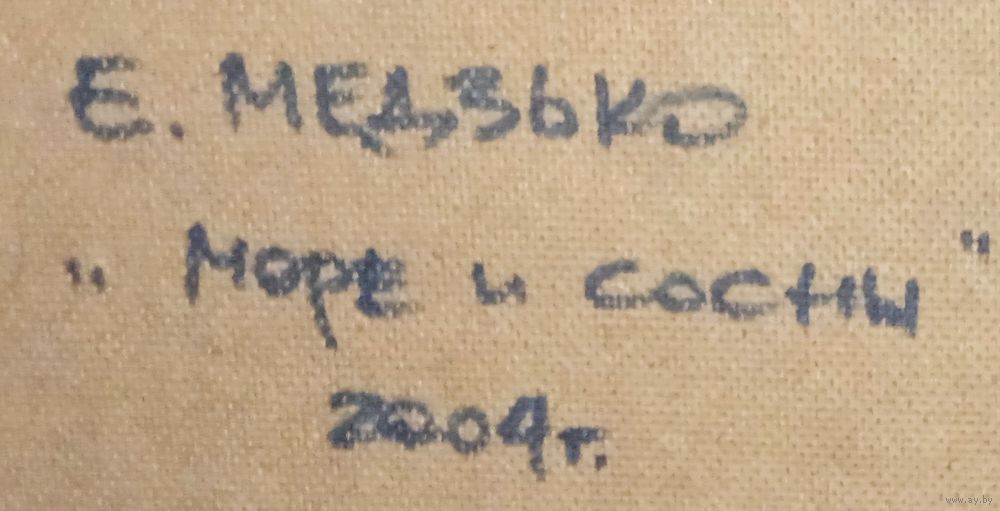 Е. МЕДЗЬКО
"Море и сосны"
2004г.
www.ay.by